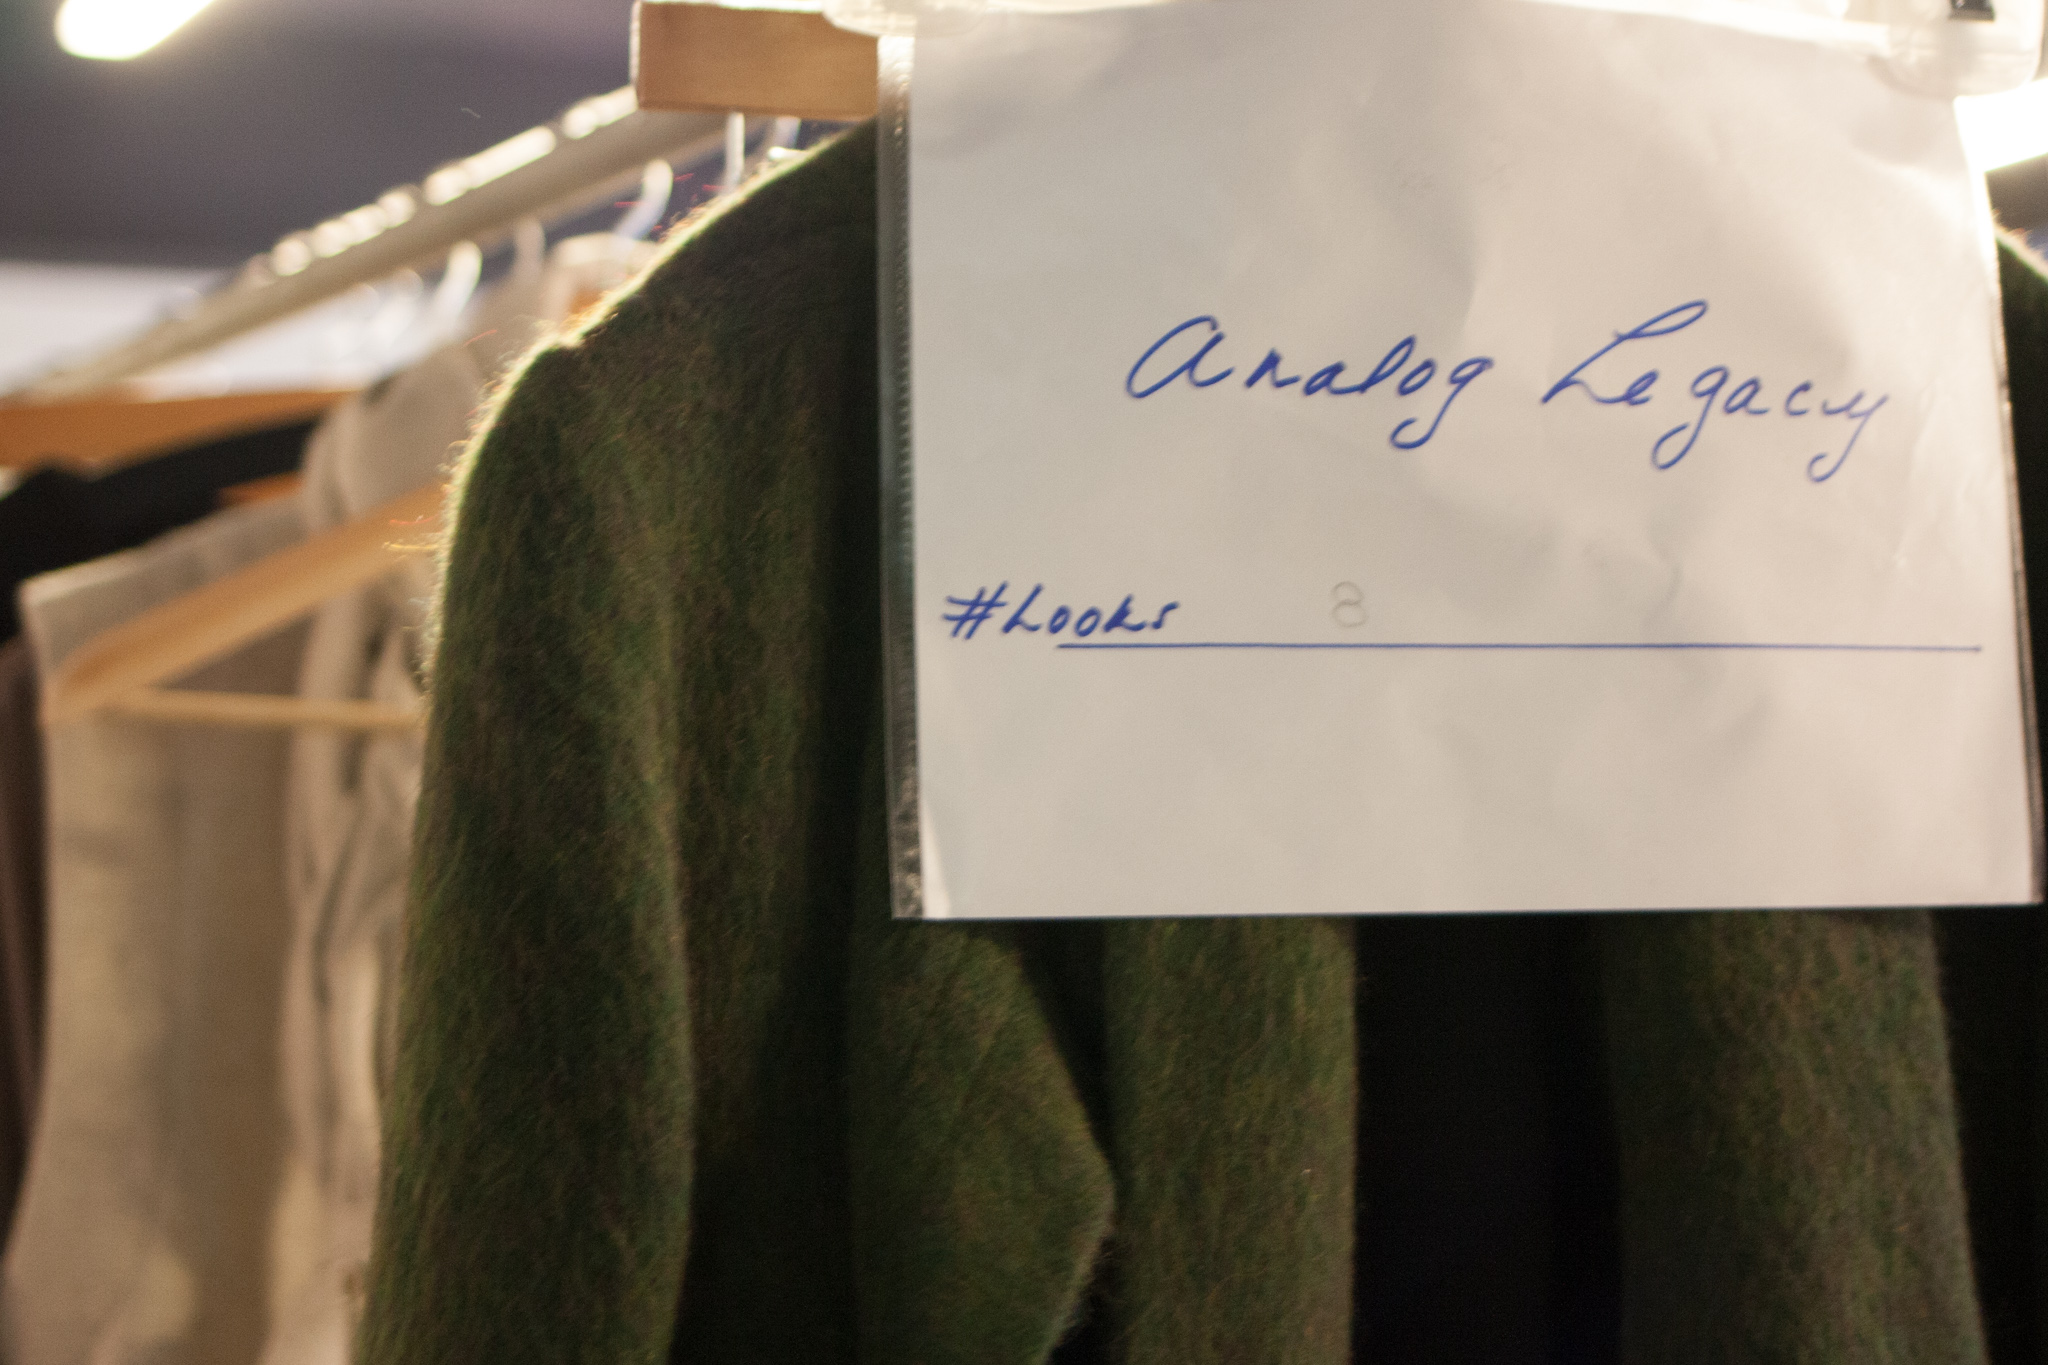 Analog Legacy
#Looks 8